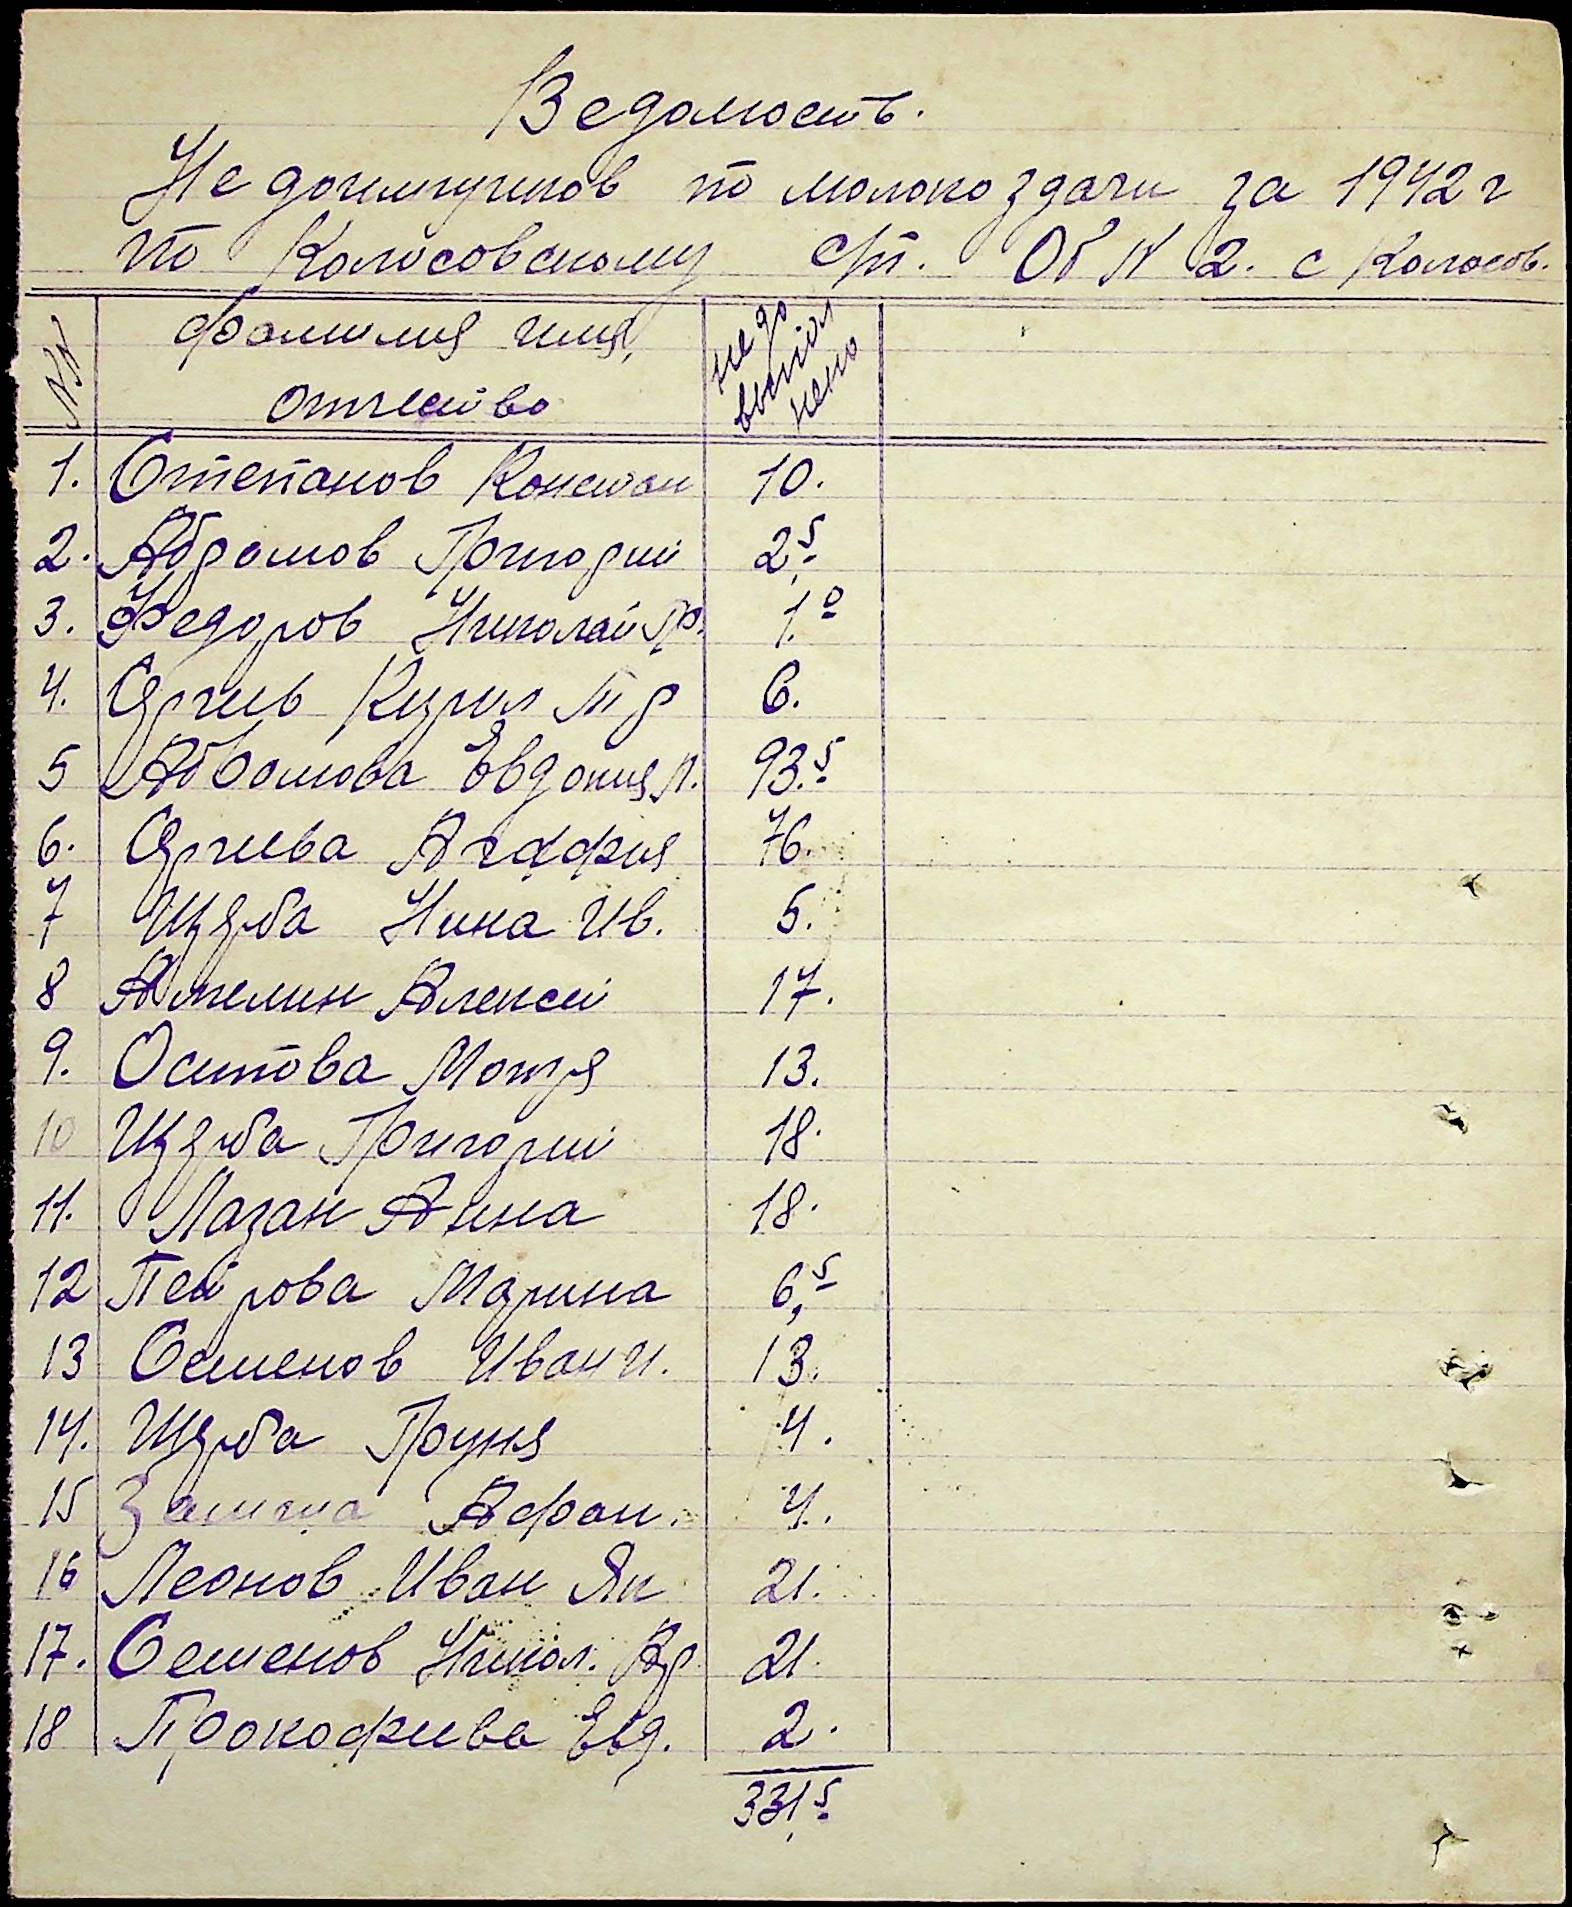 Ведомость.
Недоимщиков по молокоздачи за 1942 г
по Колосовскому с/п. Об N 2. с Колосов.
NN фамилия имя, отчество не до выпол нено
1. Степанов Констан 10.
2. Абрамов Григорий 2,5
3. Федоров Николай Гр. 1.0
4. Кирил 6.
5 Абрамова Евдокия 93.5
6. Агафия 76.
7 Щерба Нина Ив. 5.
8 Амелин Алексей 17.
9. Осипова Мотря 13.
10 Щерба Григорий 18.
11. Лазан Анна 18.
12 Петрова Марина 6,5
13 Семенов Иван И. 13.
14. Щерба Груня 4.
15 Афан. 4.
16 Леонов Иван Як 21.
17. Семенов Никол. 21.
18 Прокофиева Евд. 2.
331,5